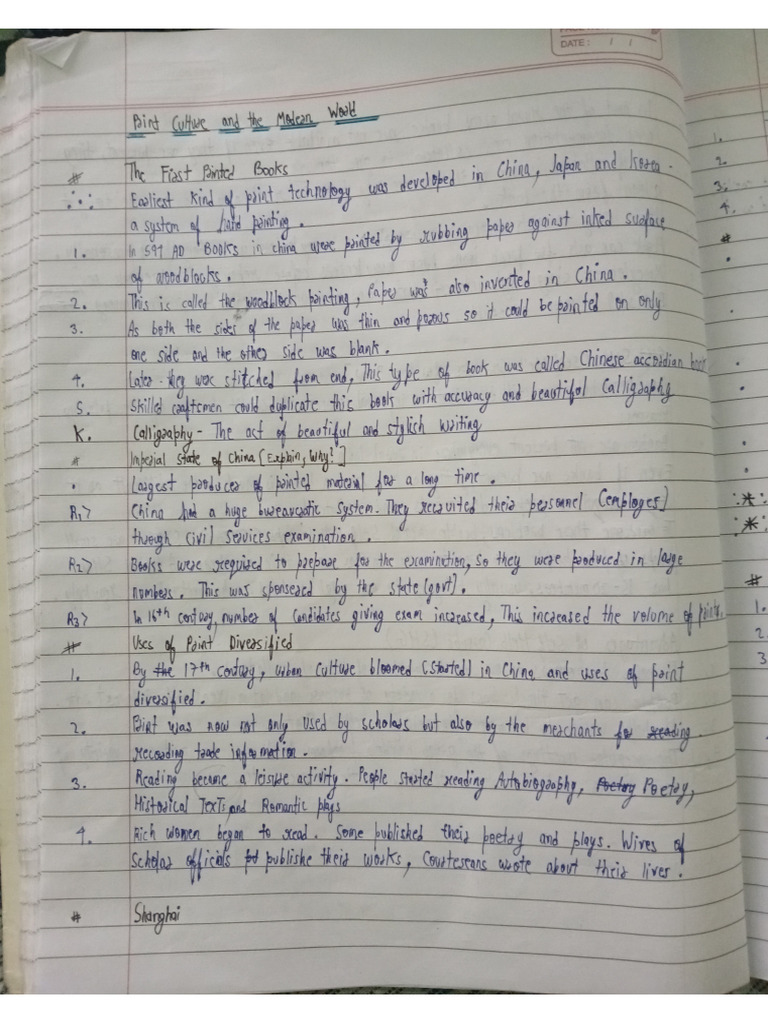 DATE: / /
Print Culture and the Modern World
# The First Printed Books
∴ Earliest Kind of print technology was developed in China, Japan and Korea -
a system of hand printing.
1. In 597 AD BOOKS in china were printed by rubbing paper against inked surface
of woodblocks.
2. This is called the woodblock printing, Paper was also invented in China.
3. As both the sides of the paper was thin and porous so it could be printed on only
one side and the other side was blank.
4. Later they were stitched from end, This type of book was called Chinese accordian book
5. Skilled craftsmen could duplicate this book with accuracy and beautiful Calligraphy
K. Calligraphy - The act of beautiful and stylish writing
# Imperial state of China [Explain, Why?]
• Largest producer of printed material for a long time.
R1> China had a huge bureaucratic system. They recruited their personnel (employees)
through Civil Services examination.
R2> Books were required to prepare for the examination, so they were produced in large
numbers. This was sponsered by the state (govt).
R3> In 16th century, number of Candidates giving exam increased, This increased the volume of prints.
# Uses of Print Diversified
1. By the 17th century, urban Culture bloomed (started) in China and uses of print
diversified.
2. Print was now not only used by scholars but also by the merchants for reading
recording trade information.
3. Reading became a leisure activity. People started reading Autobiography, Poetry Poetry,
Historical Texts, and Romantic plays
4. Rich women began to read. Some published their poetry and plays. Wives of
Scholar officials publishe their works, Courtesans wrote about their lives.
# Shanghai
1.
2.
3.
4.
#
#
1.
2.
3